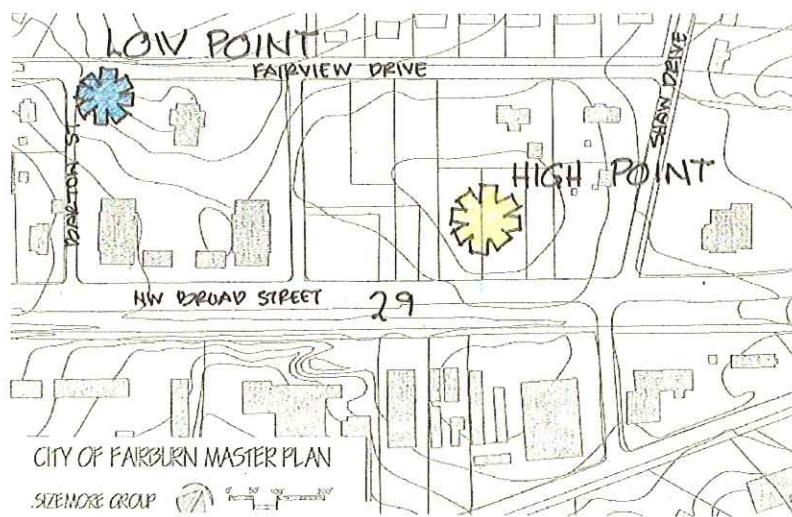 LOW POINT
FAIRVIEW DRIVE
SHAW DRIVE
BARTON ST.
HIGH POINT
NW BROAD STREET
29
CITY OF FAIRBURN MASTER PLAN
SIZEMORE GROUP
0' 50' 100' 200'